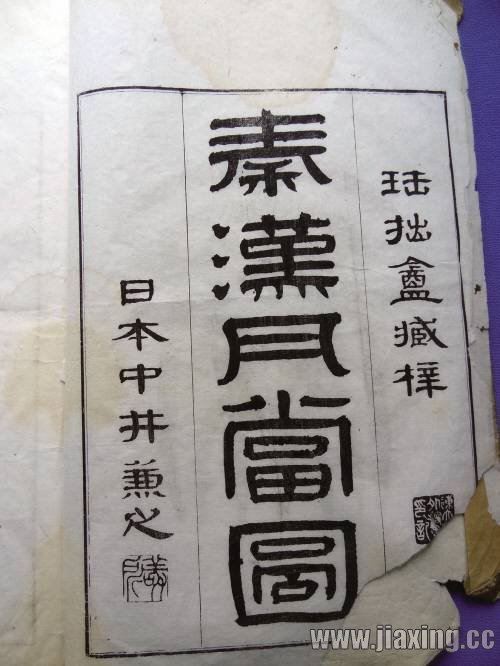 拙盦藏梓
秦漢瓦當圖
日本中井兼之
www.jiaxing.cc